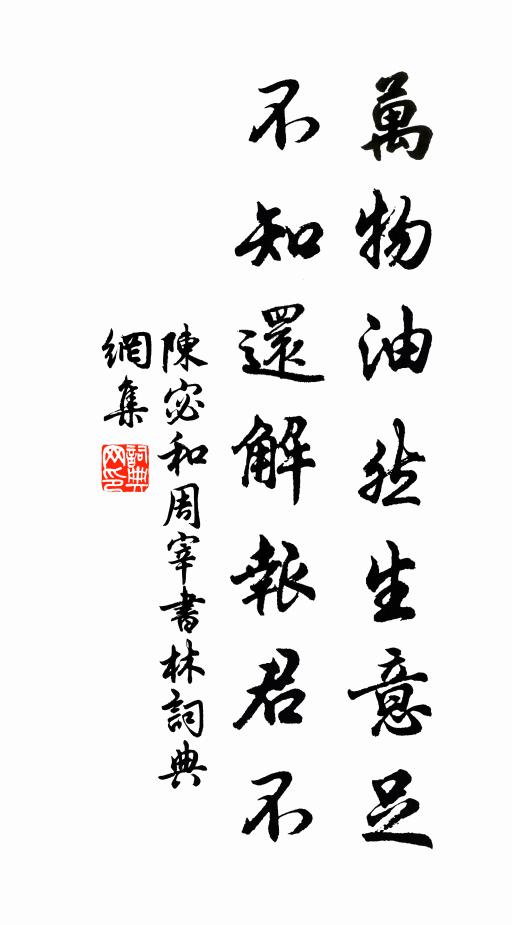 萬物油然生意足
不知還解報君不
陳宓和周宰書林詞典
網集
詞典
网印